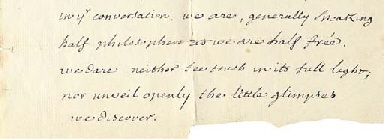 my conversation. we are, generally speaking
half philosophers as we are half free.
we dare neither see truth in its full light,
nor unveil openly the little glimpses
we discover.